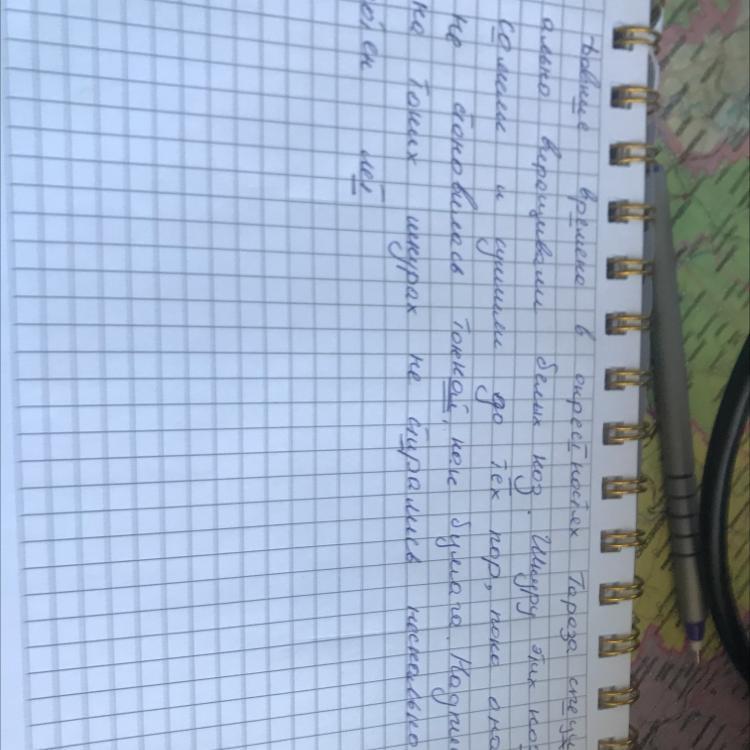 времена в окрестностях Тараза специ
ально выращивали белых коз. Шкуру этих ко
солили и сушили до тех пор, пока она
не становилась тонкой, как бумага. Надпи
на таких шкурах не стирались несколько
отен лет